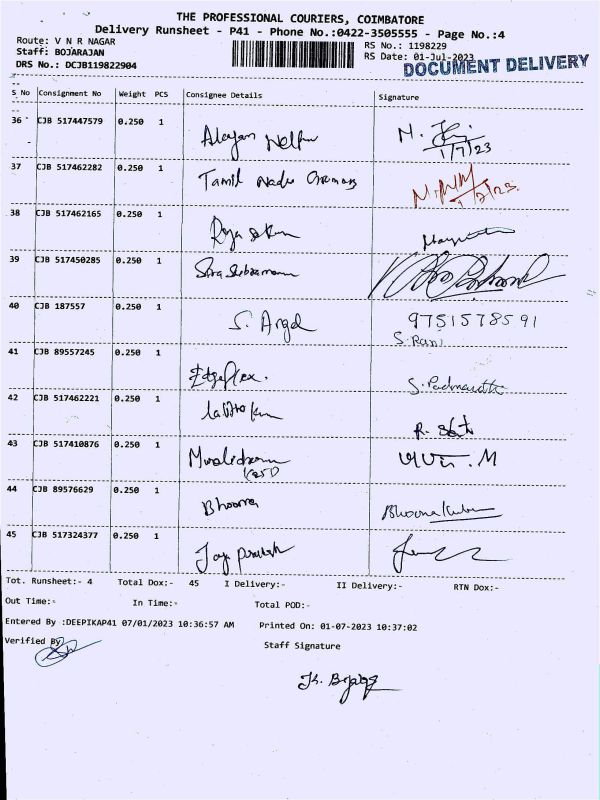 THE PROFESSIONAL COURIERS, COIMBATORE
Delivery Runsheet - P41 - Phone No.:0422-3505555 - Page No.:4
Route: V N R NAGAR
RS No.: 1198229
Staff: BOJARAJAN
RS Date: 01-Jul-2023
DRS No.: DCJB119822904
DOCUMENT DELIVERY
S No Consignment No Weight PCS Consignee Details Signature
36 CJB 517447579 0.250 1
1/7/23
37 CJB 517462282 0.250 1 Tamil Nadu
38 CJB 517462165 0.250 1
39 CJB 517450285 0.250 1 Siva Subramani
40 CJB 187557 0.250 1 S. Angel 9751578591
S. Rani
41 CJB 89557245 0.250 1 Edgeflex. S. Padmavathi
42 CJB 517462221 0.250 1
43 CJB 517410876 0.250 1 Muralidharan M
44 CJB 89576629 0.250 1 Bhoorna
45 CJB 517324377 0.250 1 Jaya Prakash
Tot. Runsheet:- 4 Total Dox:- 45 I Delivery:- II Delivery:- RTN Dox:-
Out Time:- In Time:- Total POD:-
Entered By :DEEPIKAP41 07/01/2023 10:36:57 AM Printed On: 01-07-2023 10:37:02
Verified By
Staff Signature